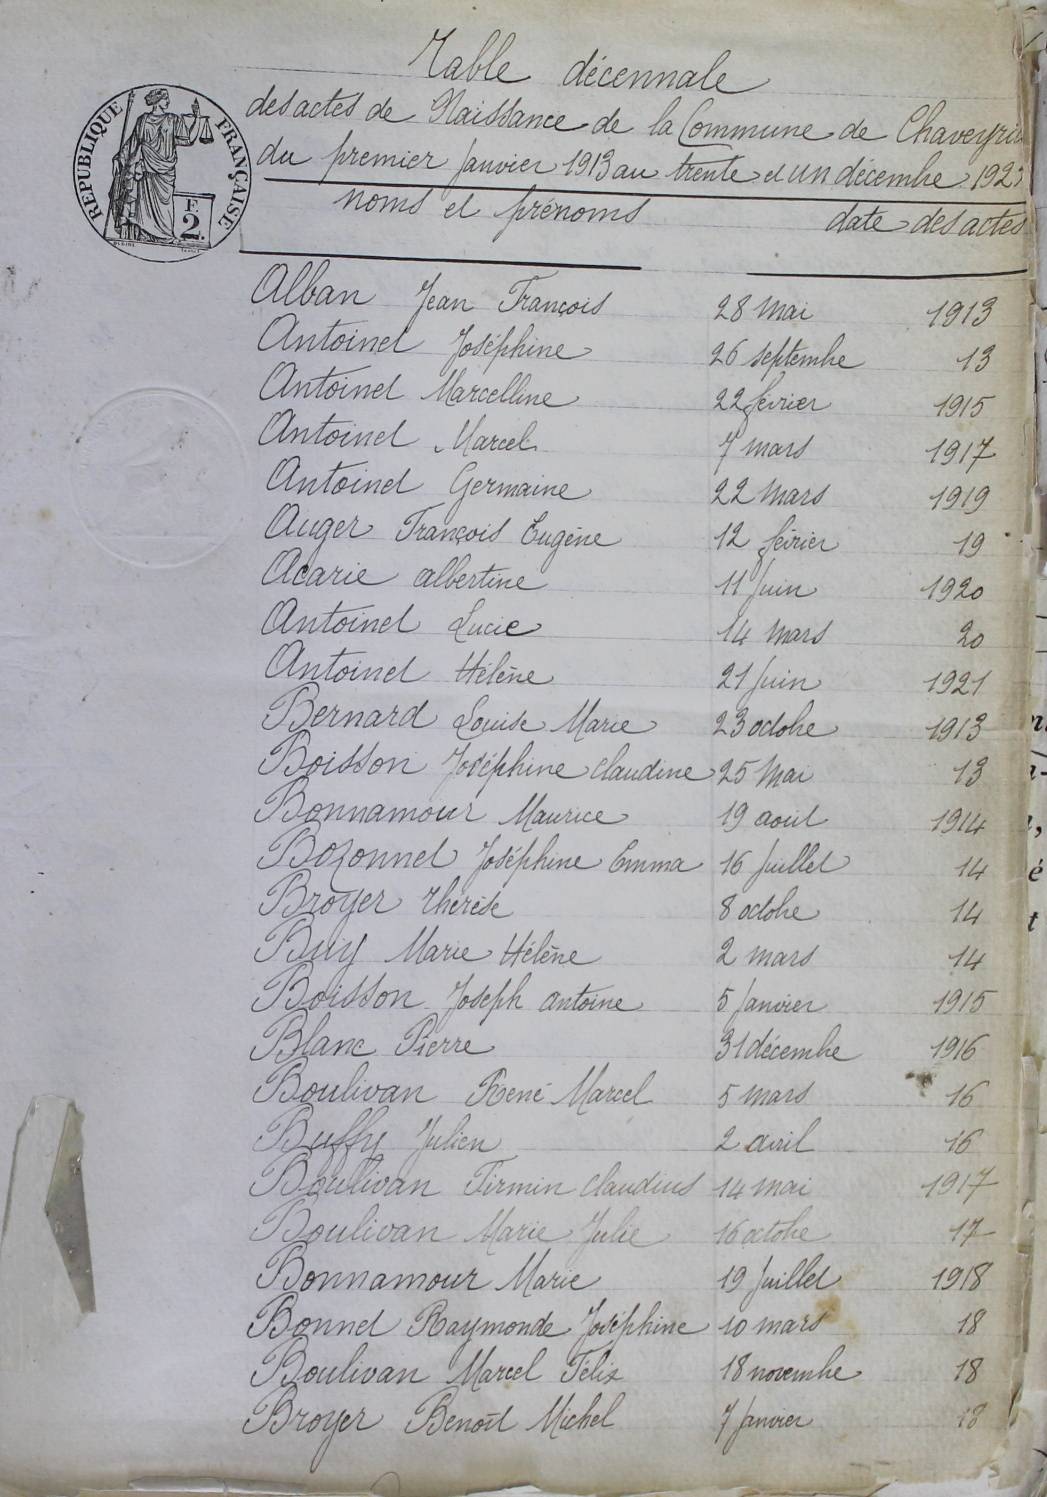 Table décennale
des actes de Naissance de la Commune de Chaveyri
du premier Janvier 1913 au trente et un décembre 192
REPUBLIQUE FRANÇAISE
F.
2.
noms et prénoms date des actes
Alban Jean François 28 Mai 1913
Antoinet Joséphine 26 septembre 13
Antoinet Marcelline 22 février 1915
Antoinet Marcel 7 mars 1917
Antoinet Germaine 22 Mars 1919
Auger François Eugène 12 février 19
Acarie albertine 11 Juin 1920
Antoinet Lucie 14 Mars 20
Antoinet Hélène 21 Juin 1921
Bernard Louise Marie 23 octobre 1913
Boisson Joséphine claudine 25 Mai 13
Bonnamour Maurice 19 aout 1914
Bozonnet Joséphine Emma 16 Juillet 14
Broyer Thérèse 8 octobre 14
Buy Marie Hélène 2 mars 14
Boisson Joseph antoine 5 Janvier 1915
Blanc Pierre 31 décembre 1916
Boulivan René Marcel 5 mars 16
Buffy Julien 2 avril 16
Boulivan Firmin claudius 14 mai 1917
Boulivan Marie Julie 16 octobre 17
Bonnamour Marie 19 Juillet 1918
Bonnet Raymonde Joséphine 10 mars 18
Boulivan Marcel Félix 18 novembre 18
Broyer Benoît Michel 7 Janvier 18